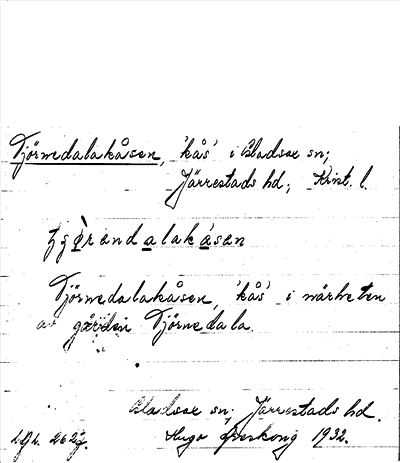 Tjörnedalakåsen, 'kås' i Gladsax sn;
Järrestads hd; Krist. l.
Tjörnedalakåsen, 'kås' i närheten
av gården Tjörnedala.
Gladsax sn; Järrestads hd.
Hugo Areskoug 1932.